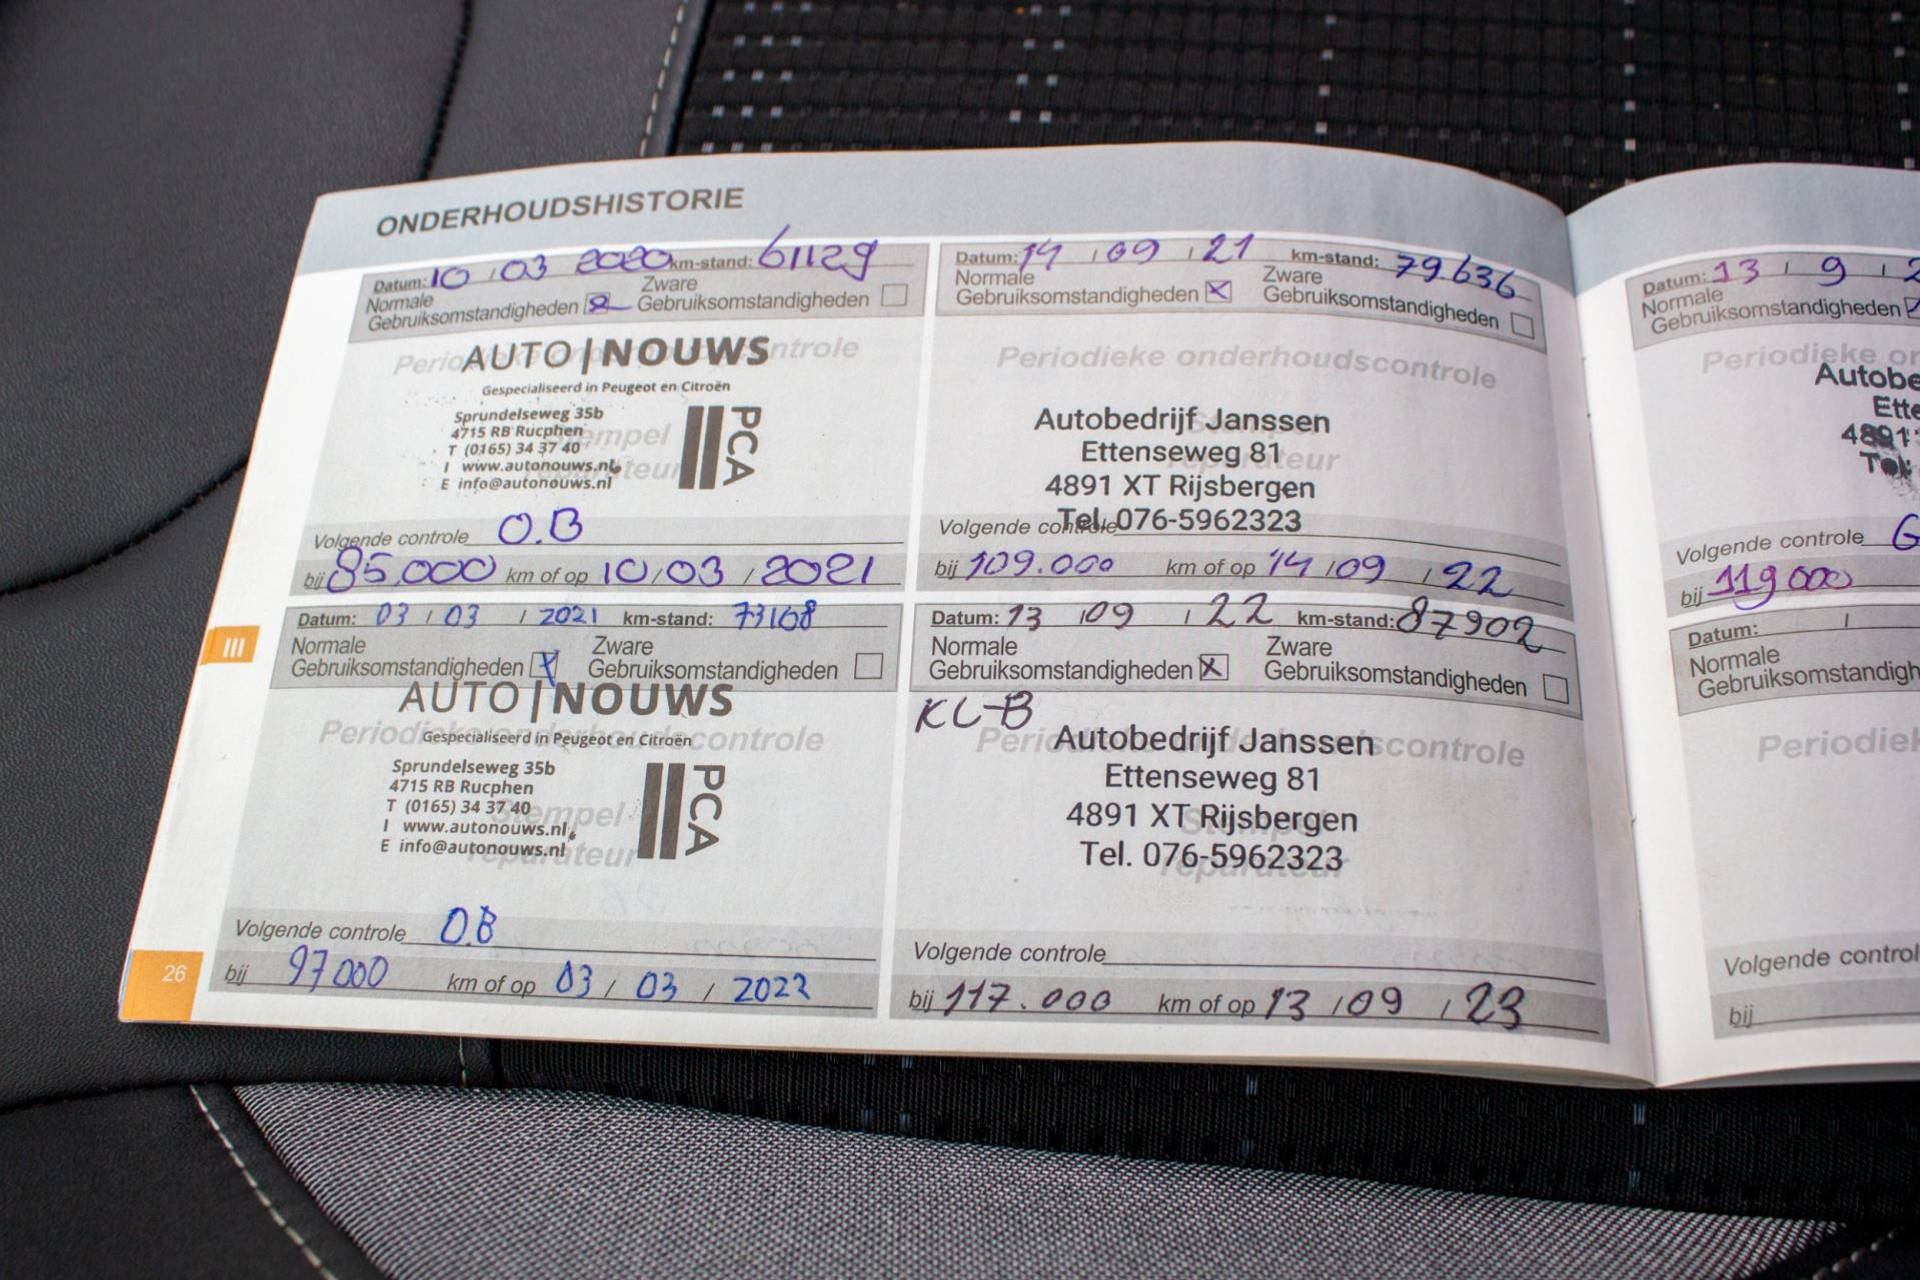 ONDERHOUDSHISTORIE
Datum: 10 / 03 2020 km-stand: 61129
Normale Zware
Gebruiksomstandigheden Gebruiksomstandigheden
Periodieke onderhoudscontrole
AUTO|NOUWS
Gespecialiseerd in Peugeot en Citroën
Sprundelseweg 35b
4715 RB Rucphen
T (0165) 34 37 40
I www.autonouws.nl
E info@autonouws.nl
PCA
Stempel
reparateur
Volgende controle O.B
bij 85.000 km of op 10 / 03 / 2021
Datum: 03 / 03 / 2021 km-stand: 73168
Normale Zware
Gebruiksomstandigheden Gebruiksomstandigheden
AUTO|NOUWS
Periodieke onderhoudscontrole
Gespecialiseerd in Peugeot en Citroën
Sprundelseweg 35b
4715 RB Rucphen
T (0165) 34 37 40
I www.autonouws.nl
E info@autonouws.nl
PCA
Stempel
reparateur
Volgende controle O.B
bij 97000 km of op 03 / 03 / 2022
III
26
Datum: 14 / 09 / 21 km-stand: 79.636
Normale Zware
Gebruiksomstandigheden Gebruiksomstandigheden
Periodieke onderhoudscontrole
Autobedrijf Janssen
Stempel
Ettenseweg 81
reparateur
4891 XT Rijsbergen
Tel. 076-5962323
Volgende controle
bij 109.000 km of op 14 / 09 / 22
Datum: 13 / 09 / 22 km-stand: 87902
Normale Zware
Gebruiksomstandigheden Gebruiksomstandigheden
KL-B
Periodieke onderhoudscontrole
Autobedrijf Janssen
Ettenseweg 81
4891 XT Rijsbergen
Stempel
Tel. 076-5962323
reparateur
Volgende controle
bij 117.000 km of op 13 / 09 / 23
Datum: 13 / 9 / 2
Normale
Gebruiksomstandigheden
Periodieke on
Autobe
Ette
4891
Tel.
Volgende controle G
bij 119000
Datum: /
Normale
Gebruiksomstandigh
Periodiek
Volgende control
bij